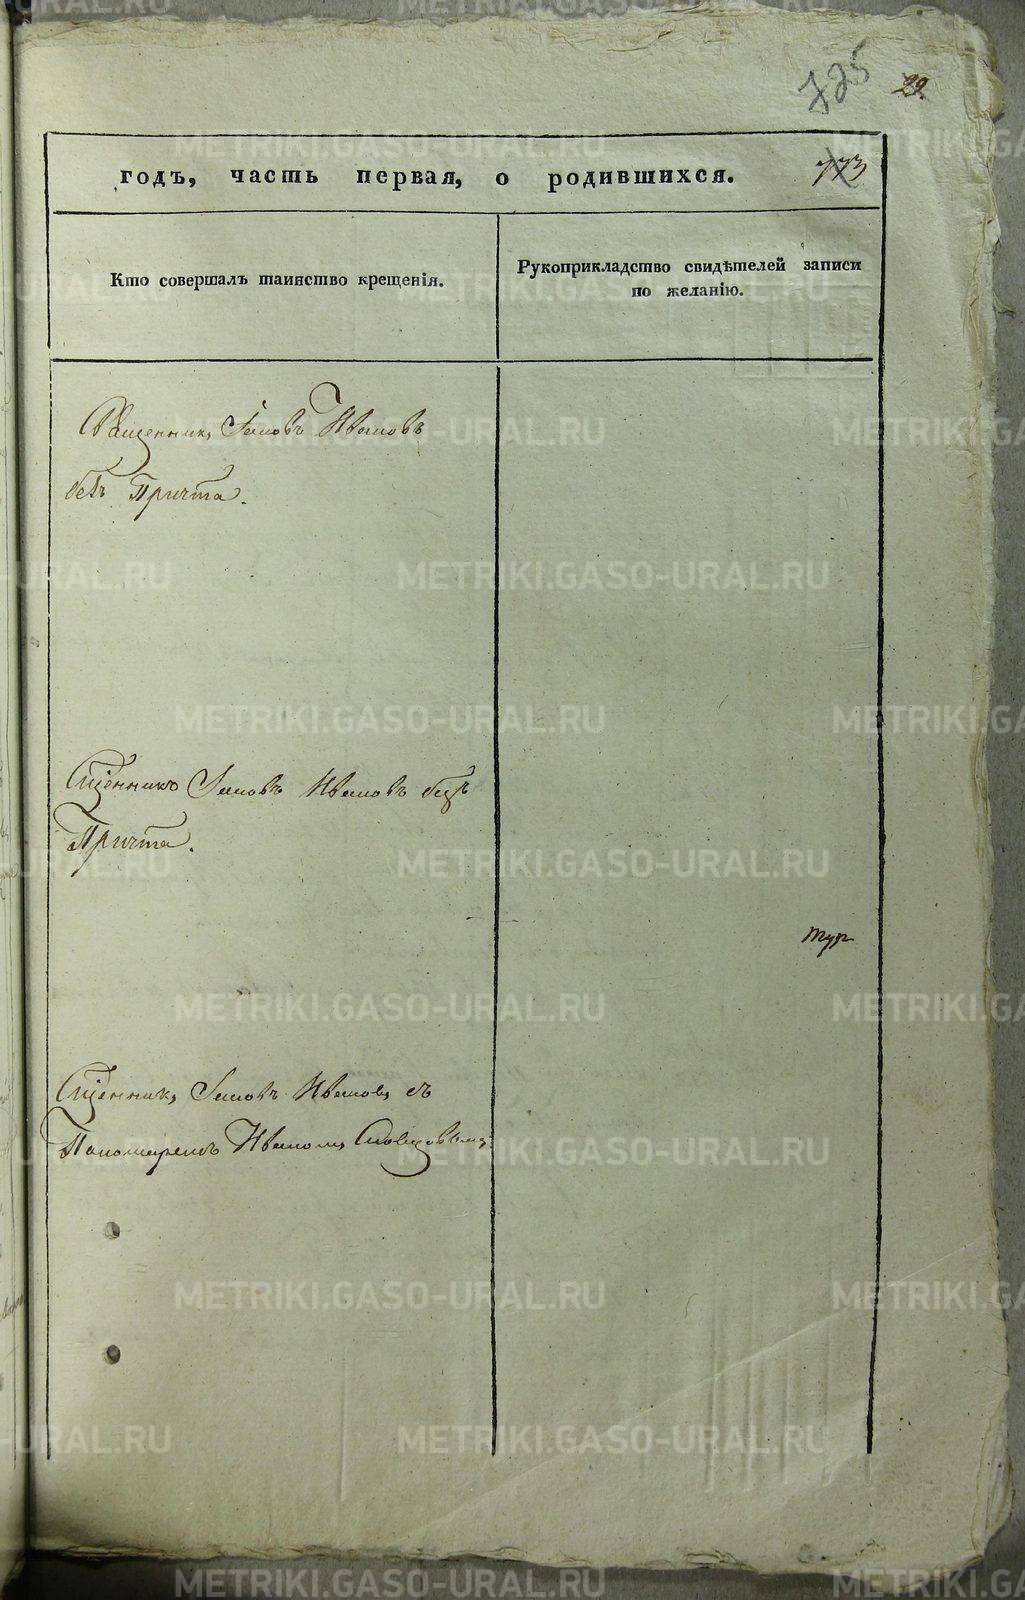 725
29.
годъ, часть первая, о родившихся.
773
Кто совершалъ таинство крещенія.
Рукоприкладство свидѣтелей записи
по желанію.
Священникъ Іаковъ Ивановъ
безъ Причта.
Сщенникъ Іаковъ Ивановъ безъ
Причта.
Сщенникъ Іаковъ Ивановъ съ
Пономаремъ Иваномъ
METRIKI.GASO-URAL.RU